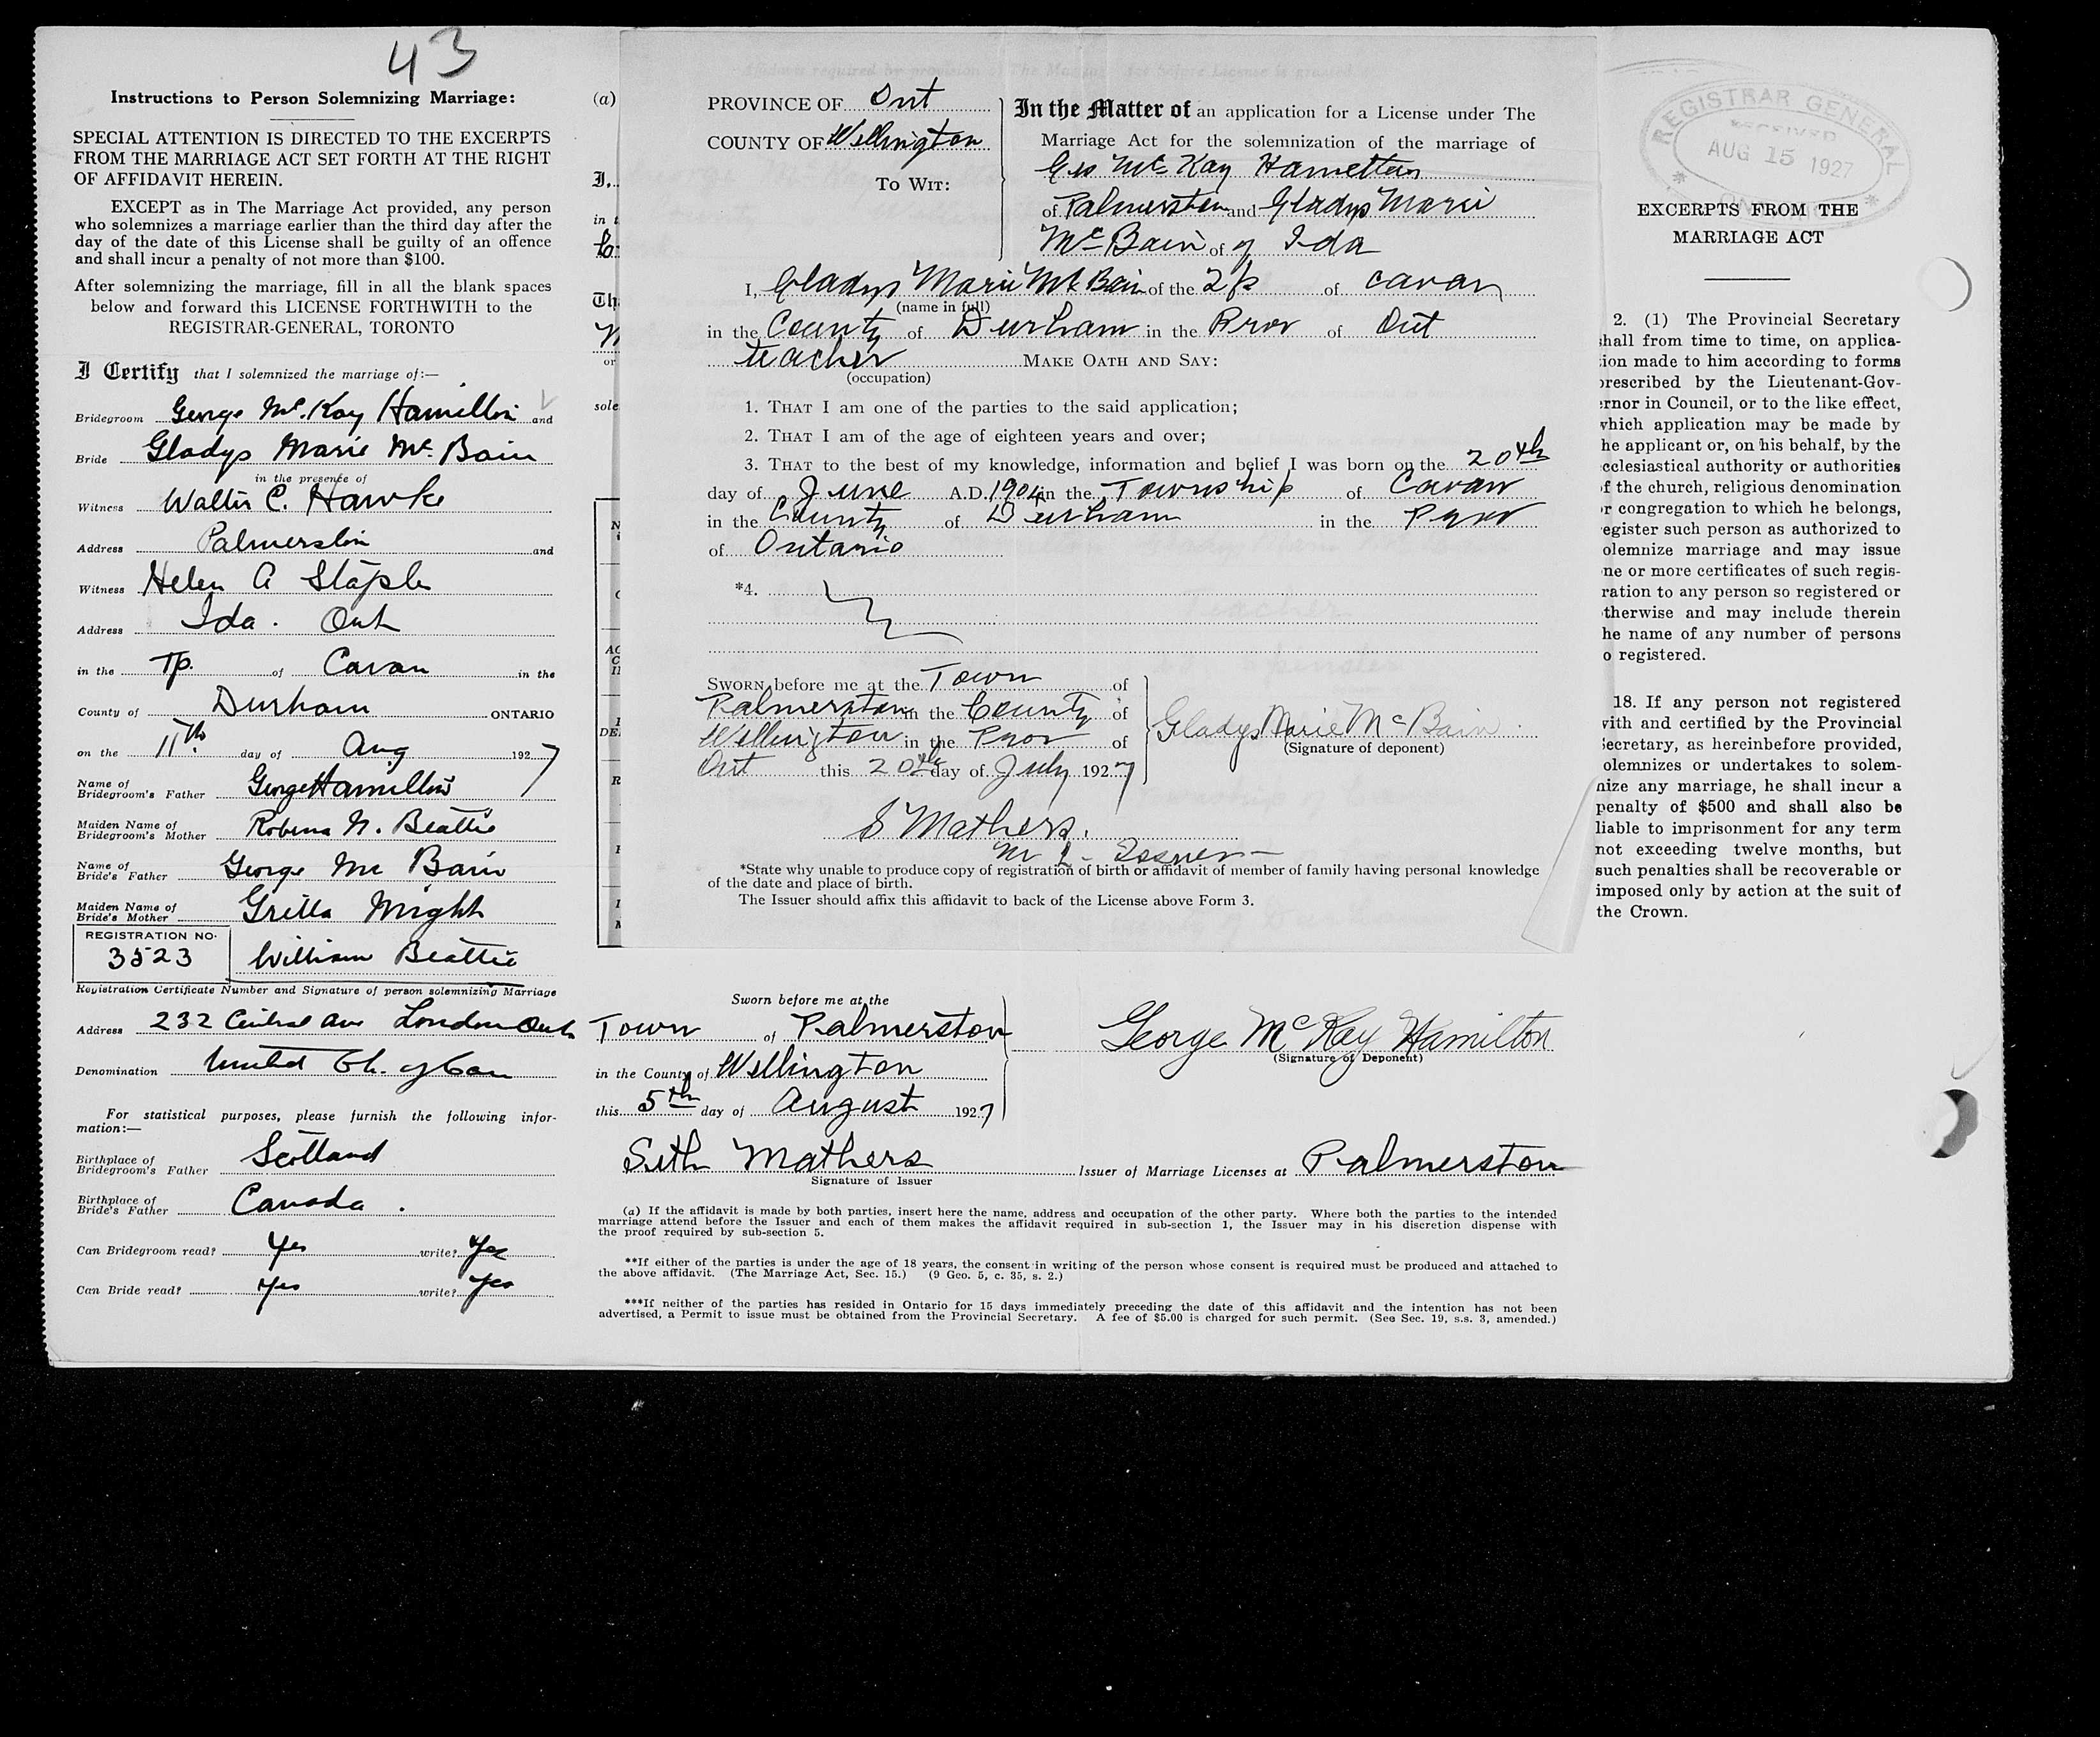 43
Instructions to Person Solemnizing Marriage:
SPECIAL ATTENTION IS DIRECTED TO THE EXCERPTS
FROM THE MARRIAGE ACT SET FORTH AT THE RIGHT
OF AFFIDAVIT HEREIN.
EXCEPT as in The Marriage Act provided, any person
who solemnizes a marriage earlier than the third day after the
day of the date of this License shall be guilty of an offence
and shall incur a penalty of not more than $100.
After solemnizing the marriage, fill in all the blank spaces
below and forward this LICENSE FORTHWITH to the
REGISTRAR-GENERAL, TORONTO
I Certify that I solemnized the marriage of:—
Bridegroom George Mc. Kay Hamilton and
Bride Gladys Marie Mc Bain
in the presence of
Witness Walter C. Hawke
Address Palmerston and
Witness Helen A Staple
Address Ida. Ont
in the Tp. of Cavan in the
County of Durham ONTARIO
on the 11th. day of Aug 1927
Name of
Bridegroom's Father George Hamilton
Maiden Name of
Bridegroom's Mother Robena N. Beattie
Name of
Bride's Father George Mc Bain
Maiden Name of
Bride's Mother Gretta Might
REGISTRATION NO.
3523 William Beattie
Registration Certificate Number and Signature of person solemnizing Marriage
Address 232 Central Ave London Ont
Denomination United Ch. of Can
For statistical purposes, please furnish the following infor-
mation:—
Birthplace of
Bridegroom's Father Scotland
Birthplace of
Bride's Father Canada.
Can Bridegroom read? Yes write? Yes
Can Bride read? Yes write? Yes
(a)
I,
in t
Th
or
sole
PROVINCE OF Ont
COUNTY OF Wellington
TO WIT:
In the Matter of an application for a License under The
Marriage Act for the solemnization of the marriage of
Geo Mc Kay Hamilton
of Palmerston and Gladys Marie
Mc Bain of of Ida
I, Gladys Marie Mc Bain of the Tp of Cavan
(name in full)
in the County of Durham in the Prov of Ont
teacher MAKE OATH AND SAY:
(occupation)
1. THAT I am one of the parties to the said application;
2. THAT I am of the age of eighteen years and over;
3. THAT to the best of my knowledge, information and belief I was born on the 20th
day of June A.D. 1904 in the Township of Cavan
in the County of Durham in the Prov
of Ontario
*4.
SWORN before me at the Town of
Palmerston in the County of
Wellington in the Prov of
Ont this 20th day of July 1927
Gladys Marie McBain.
(Signature of deponent)
S Mathers.
M L - Issuer
*State why unable to produce copy of registration of birth or affidavit of member of family having personal knowledge
of the date and place of birth.
The Issuer should affix this affidavit to back of the License above Form 3.
Sworn before me at the
Town of Palmerston
in the County of Wellington
this 5th day of August 1927
George McKay Hamilton
(Signature of Deponent)
Seth Mathers Issuer of Marriage Licenses at Palmerston
Signature of Issuer
(a) If the affidavit is made by both parties, insert here the name, address and occupation of the other party. Where both the parties to the intended
marriage attend before the Issuer and each of them makes the affidavit required in sub-section 1, the Issuer may in his discretion dispense with
the proof required by sub-section 5.
**If either of the parties is under the age of 18 years, the consent in writing of the person whose consent is required must be produced and attached to
the above affidavit. (The Marriage Act, Sec. 15.) (9 Geo. 5, c. 35, s. 2.)
***If neither of the parties has resided in Ontario for 15 days immediately preceding the date of this affidavit and the intention has not been
advertised, a Permit to issue must be obtained from the Provincial Secretary. A fee of $5.00 is charged for such permit. (See Sec. 19, s.s. 3, amended.)
REGISTRAR GENERAL
RECEIVED
AUG 15 1927
EXCERPTS FROM THE
MARRIAGE ACT
2. (1) The Provincial Secretary
shall from time to time, on applica-
tion made to him according to forms
prescribed by the Lieutenant-Gov-
ernor in Council, or to the like effect,
which application may be made by
he applicant or, on his behalf, by the
cclesiastical authority or authorities
f the church, religious denomination
r congregation to which he belongs,
egister such person as authorized to
olemnize marriage and may issue
ne or more certificates of such regis-
ration to any person so registered or
therwise and may include therein
he name of any number of persons
o registered.
18. If any person not registered
with and certified by the Provincial
Secretary, as hereinbefore provided,
olemnizes or undertakes to solem-
nize any marriage, he shall incur a
penalty of $500 and shall also be
liable to imprisonment for any term
not exceeding twelve months, but
such penalties shall be recoverable or
imposed only by action at the suit of
the Crown.